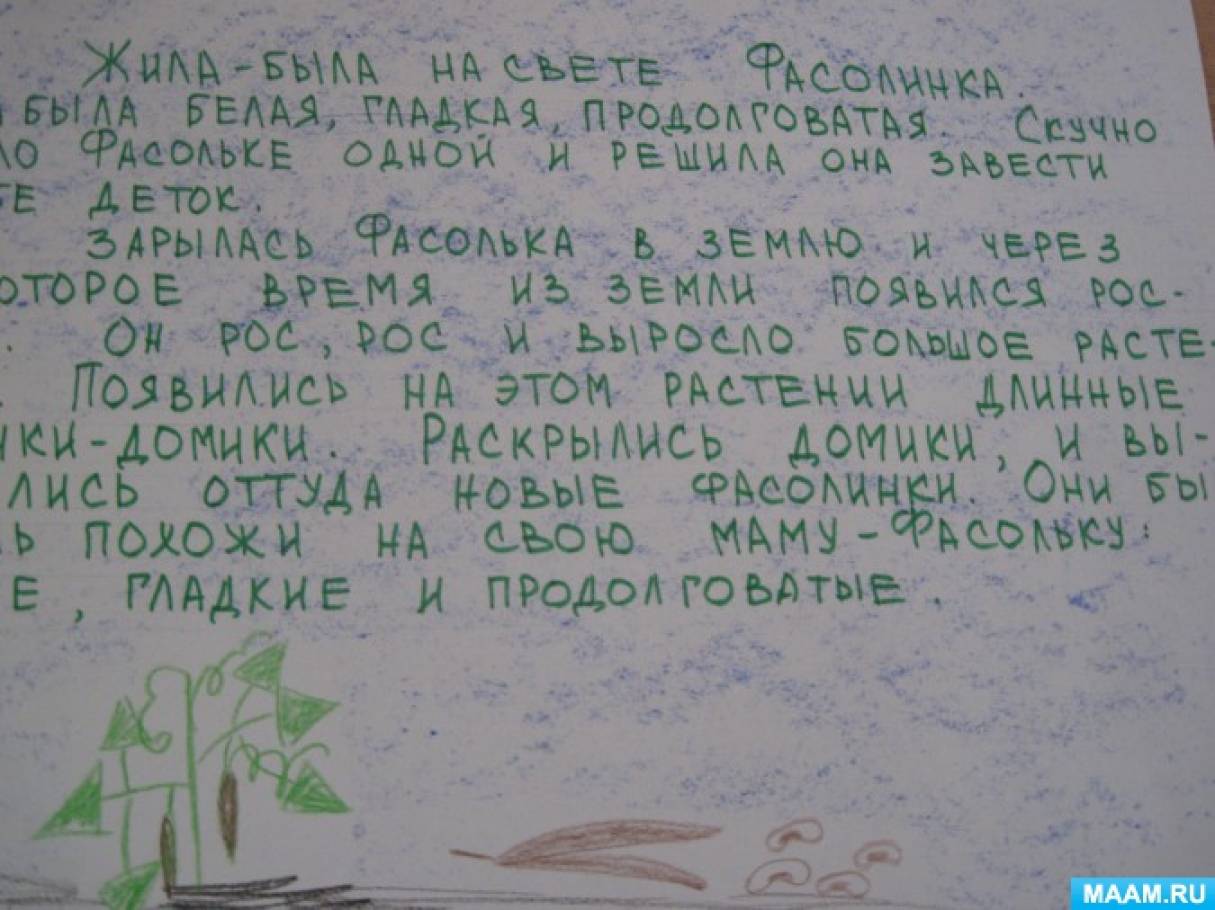 Жила-была на свете Фасолинка.
была белая, гладкая, продолговатая. Скучно
ло Фасольке одной и решила она завести
бе деток.
Зарылась Фасолька в землю и через
оторое время из земли появился рос-
. Он рос, рос и выросло большое расте-
. Появились на этом растении длинные
чки-домики. Раскрылись домики, и вы-
лись оттуда новые фасолинки. Они бы
ь похожи на свою маму-Фасольку:
е, гладкие и продолговатые.
MAAM.RU